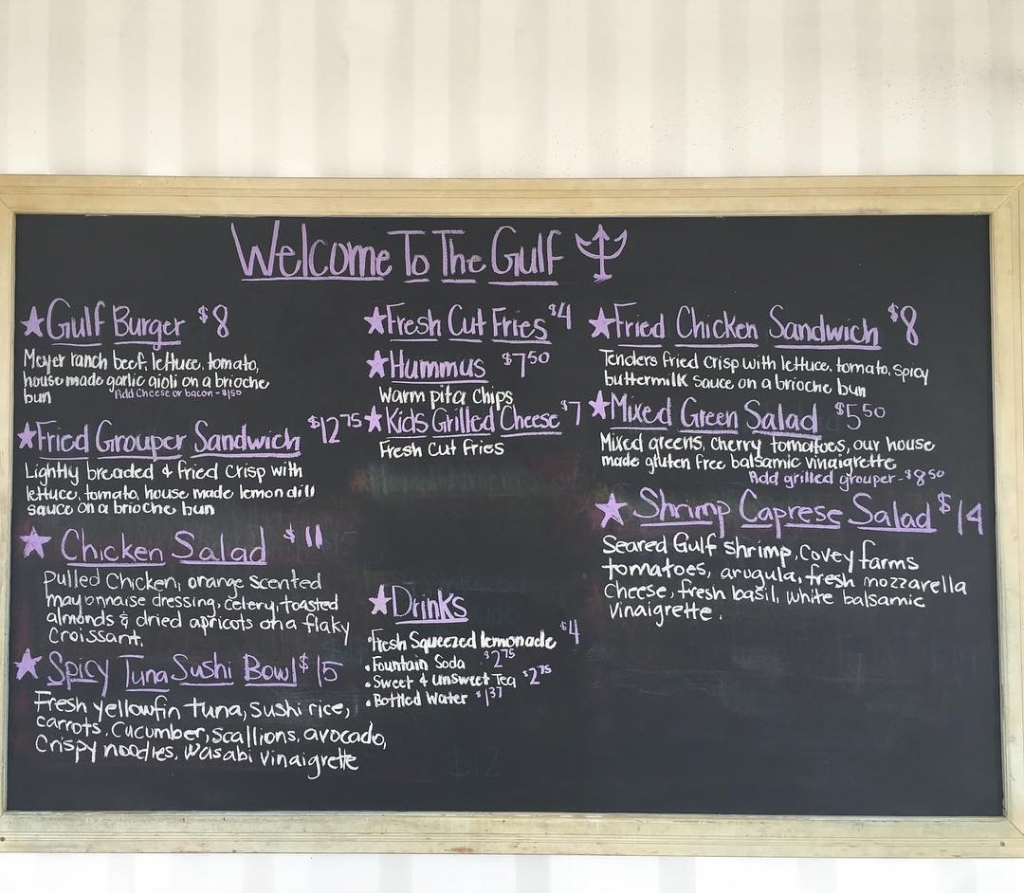 Welcome To The Gulf
★Gulf Burger $8
Meyer ranch beef, lettuce, tomato,
house made garlic aioli on a brioche
bun
Add Cheese or bacon - $1.50
★Fried Grouper Sandwich $12.75
Lightly breaded & fried crisp with
lettuce, tomato, house made lemon dill
sauce on a brioche bun
★Chicken Salad $11
Pulled Chicken, orange scented
mayonnaise dressing, celery, toasted
almonds & dried apricots on a flaky
Croissant.
★Spicy Tuna Sushi Bowl $15
Fresh yellowfin tuna, sushi rice,
carrots, cucumber, scallions, avocado,
Crispy noodles, wasabi vinaigrette
★Fresh Cut Fries $4
★Hummus $7.50
Warm pita chips
★Kids Grilled Cheese $7
Fresh Cut Fries
★Drinks
•Fresh Squeezed lemonade $4
•Fountain Soda $2.75
•Sweet & Unsweet Tea $2.75
•Bottled Water $1.37
★Fried Chicken Sandwich $8
Tenders fried crisp with lettuce, tomato, spicy
buttermilk sauce on a brioche bun
★Mixed Green Salad $5.50
Mixed greens, cherry tomatoes, our house
made gluten free balsamic vinaigrette
Add grilled grouper - $8.50
★Shrimp Caprese Salad $14
Seared Gulf shrimp, Covey farms
tomatoes, arugula, fresh mozzarella
Cheese, fresh basil, white balsamic
vinaigrette.